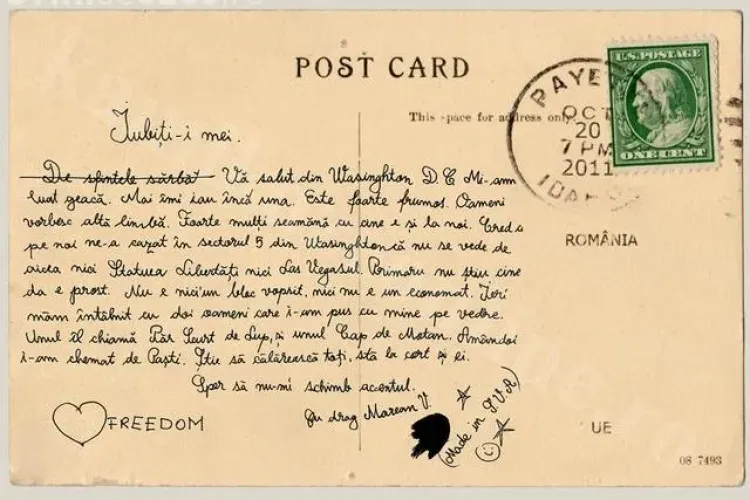 POST CARD
This space for address only
PAYE
OCT
20
7 PM
2011
IDAHO
U.S. POSTAGE
ONE CENT
Iubiți-i mei.
De sfintele sărbăt Vă salut din Wasinghton D.C Mi-am
luat geacă. Mai îmi iau încă una. Este foarte frumos. Oameni
vorbesc altă limbă. Foarte mulți seamănă cu cine e și la noi. Cred că
pe noi ne-a cazat în sectorul 5 din Wasinghton că nu se vede de
aicea nici Statuea Libertăți nici Las Vegasul. Primaru nu știu cine
da e prost. Nu e nici'un bloc vopsit, nici nu e un economat. Ieri
mam întâlnit cu doi oameni care i-am pus cu mine pe vedere.
Unul îl chiamă Păr Scurt de Lup, și unul Cap de Motan. Amândoi
i-am chemat de Paști. Știe să călărească toți, stă la cort și ei.
Sper să nu-mi schimb acentul.
Cu drag Marean V.
(Made in S.U.A)
FREEDOM
ROMÂNIA
UE
08 7493